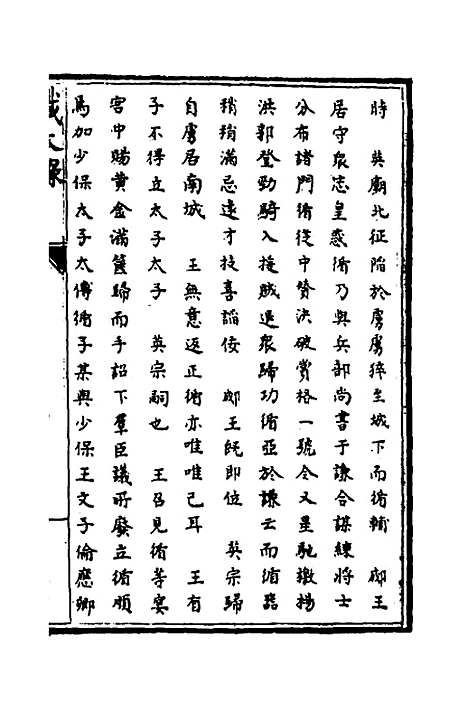 時　英廟北征陷於虜虜猝至城下而循輔　郕王
居守衆志皇惑循乃與兵部尚書于謙合謀練將士
分布諸門循從中贊決破賞格一號令又星馳檄楊
洪郭登勁騎入援賊退衆歸功循亞於謙云而循器
稍稍滿忌遠才技喜謟佞　郕王既即位　英宗歸
自虜居南城　王無意返正循亦唯唯已耳　王有
子不得立太子太子　英宗嗣也　王召見循等宴
宮中賜黃金滿篋歸而手詔下羣臣議所廢立循頫
為加少保太子太傅循子某與少保王文子倫應鄉